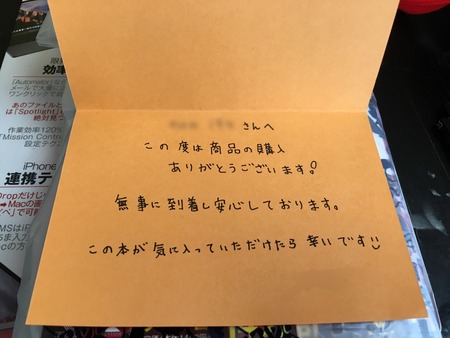 さんへ
この度は商品の購入
ありがとうございます!
無事に到着し安心しております。
この本が気に入っていただけたら幸いです
効率
「Automator」な
メールで大量に
ワンクリックで
あのファイルと
は「Spotlight」
絶対見つ
作業効率120%
「Mission Contr
設定テク
iPhone
連携テ
Dropだけじ
→Macの画
で可能